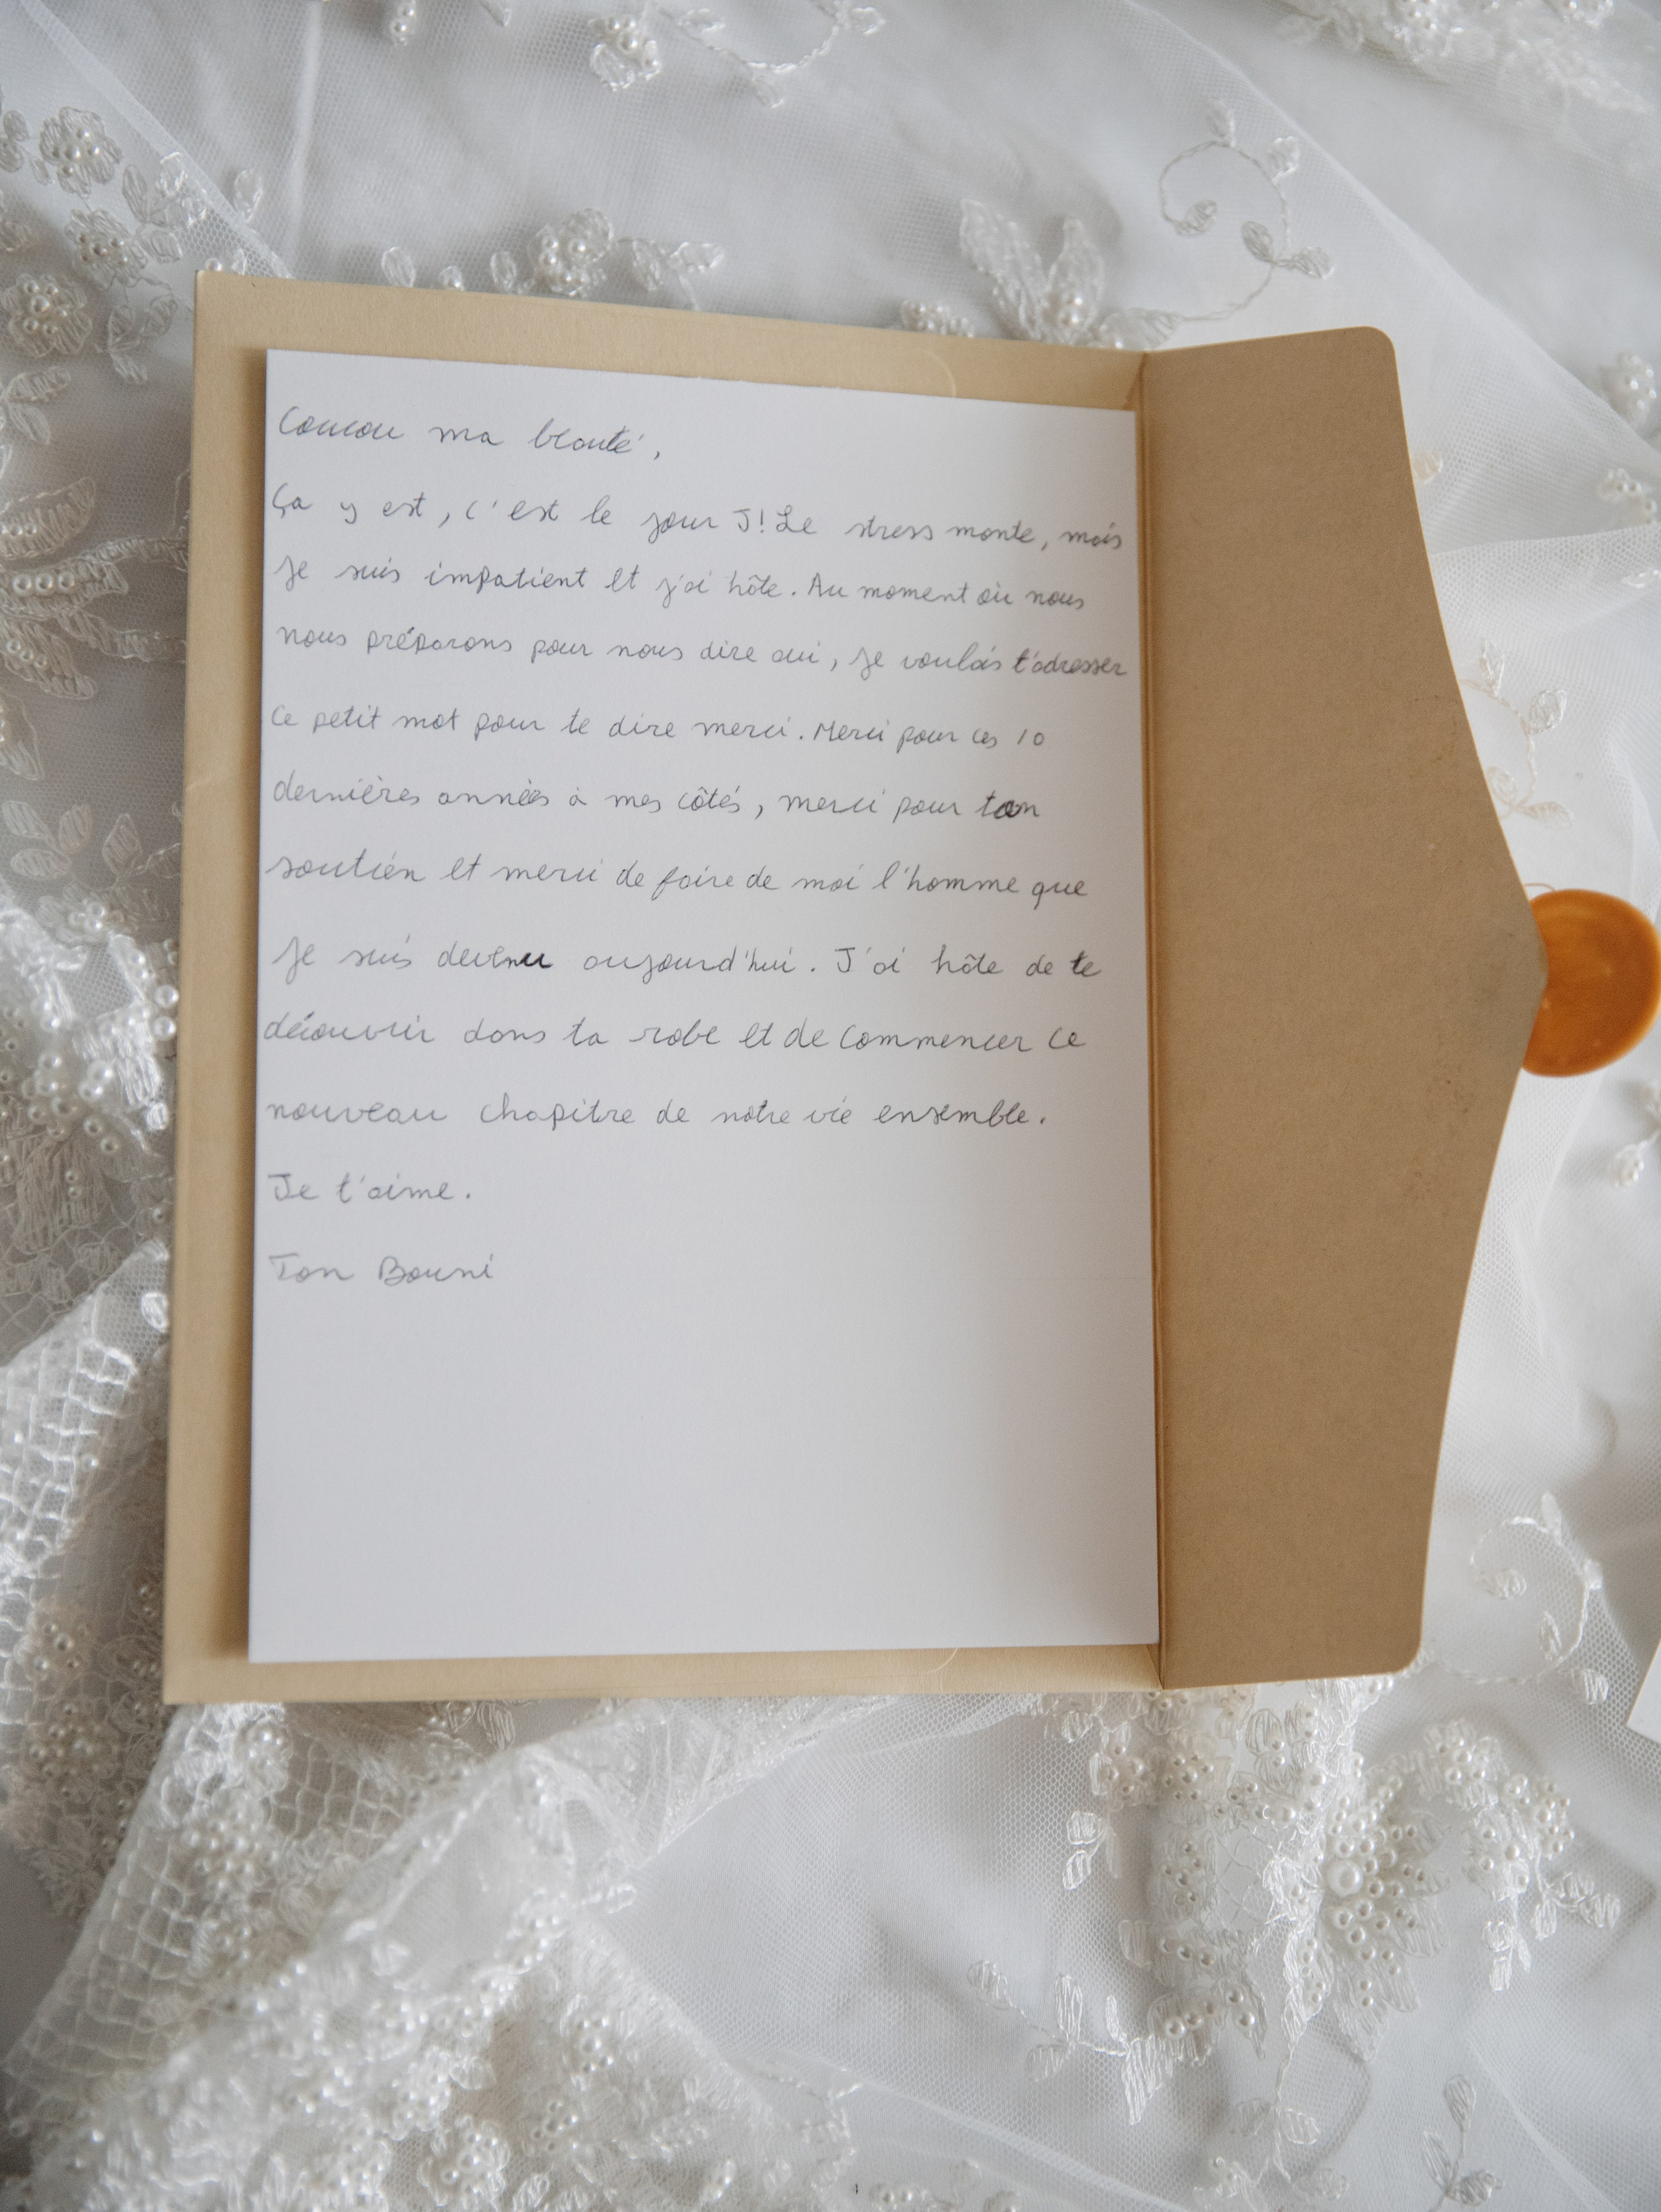 Coucou ma beauté,
Ça y est, c'est le jour J! Le stress monte, mais
je suis impatient et j'ai hâte. Au moment où nous
nous préparons pour nous dire oui, je voulais t'adresser
ce petit mot pour te dire merci. Merci pour ces 10
dernières années à mes côtés, merci pour ton
soutien et merci de faire de moi l'homme que
je suis devenu aujourd'hui. J'ai hâte de te
découvrir dans ta robe et de commencer ce
nouveau chapitre de notre vie ensemble.
Je t'aime.
Ton Bouni